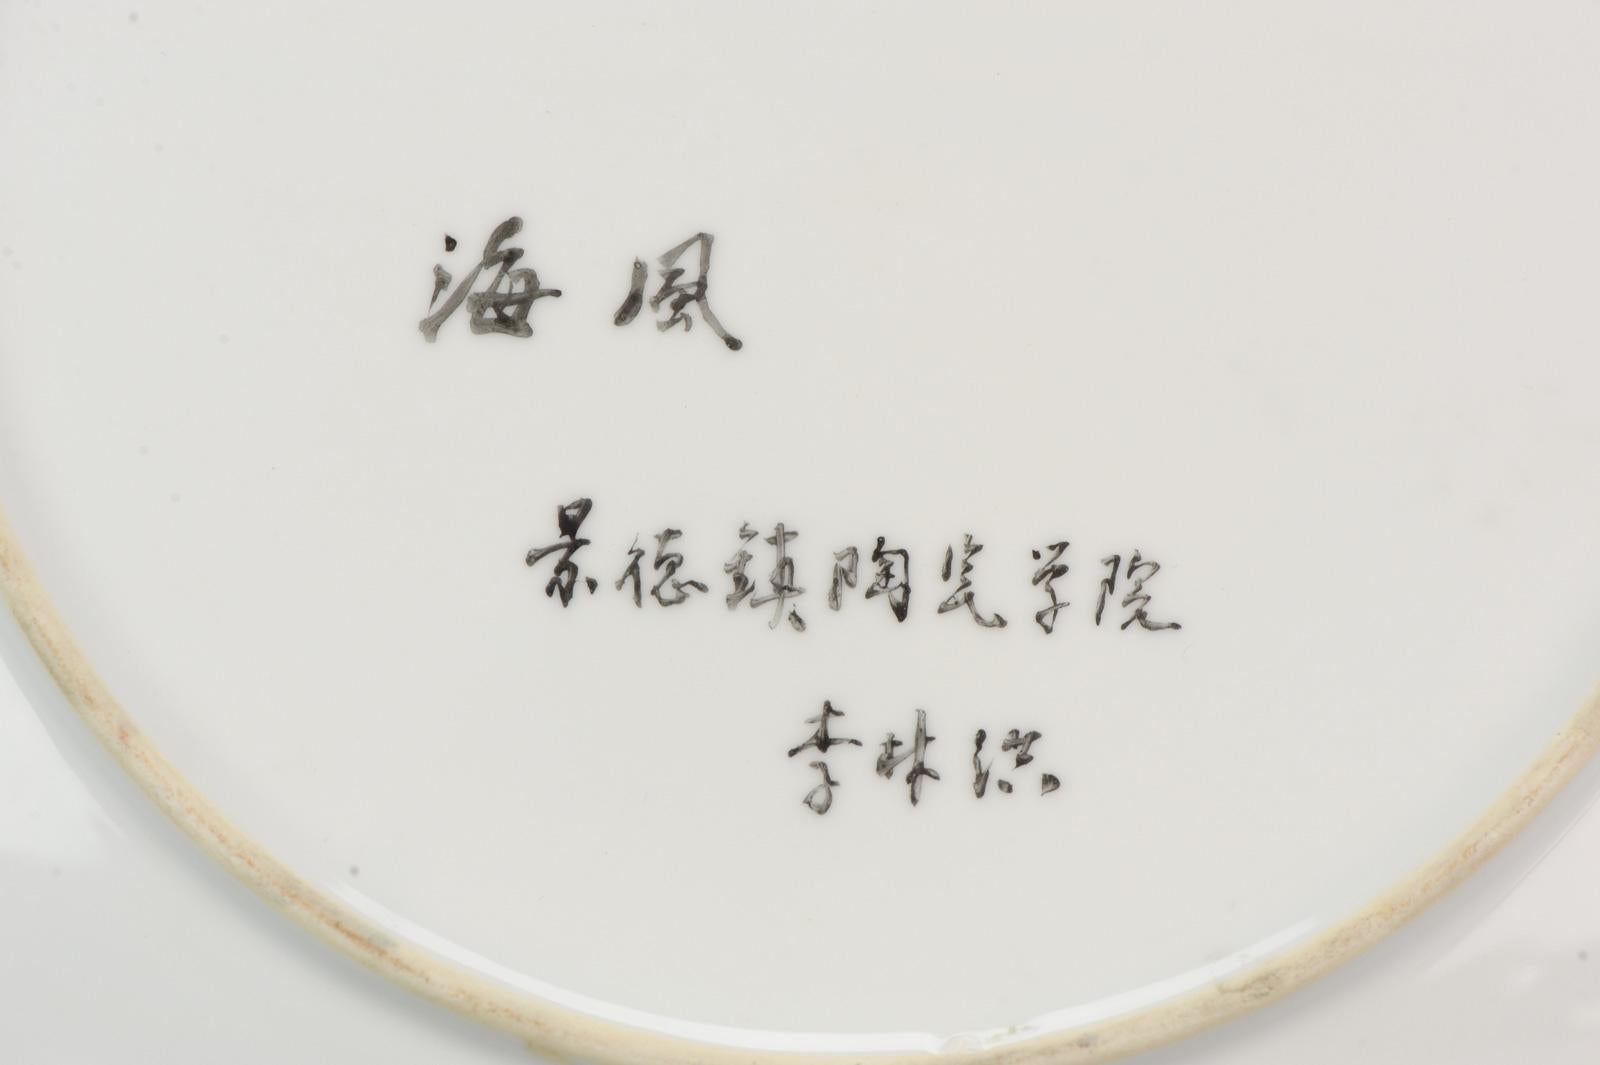 海风
景德鎮陶瓷学院
李林洪